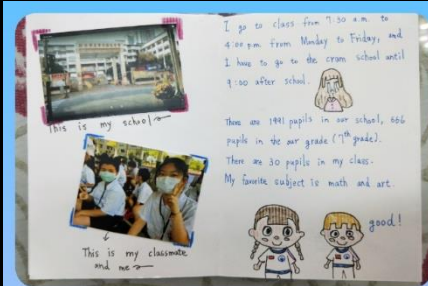 This is my school
This is my classmate
and me
I go to class from 7:30 a.m. to
4:00 p.m. from Monday to Friday, and
I have to go to the cram school until
9:00 after school.
There are 1991 pupils in our school, 666
pupils in the our grade (7th grade).
There are 30 pupils in my class.
My favorite subject is math and art.
good!